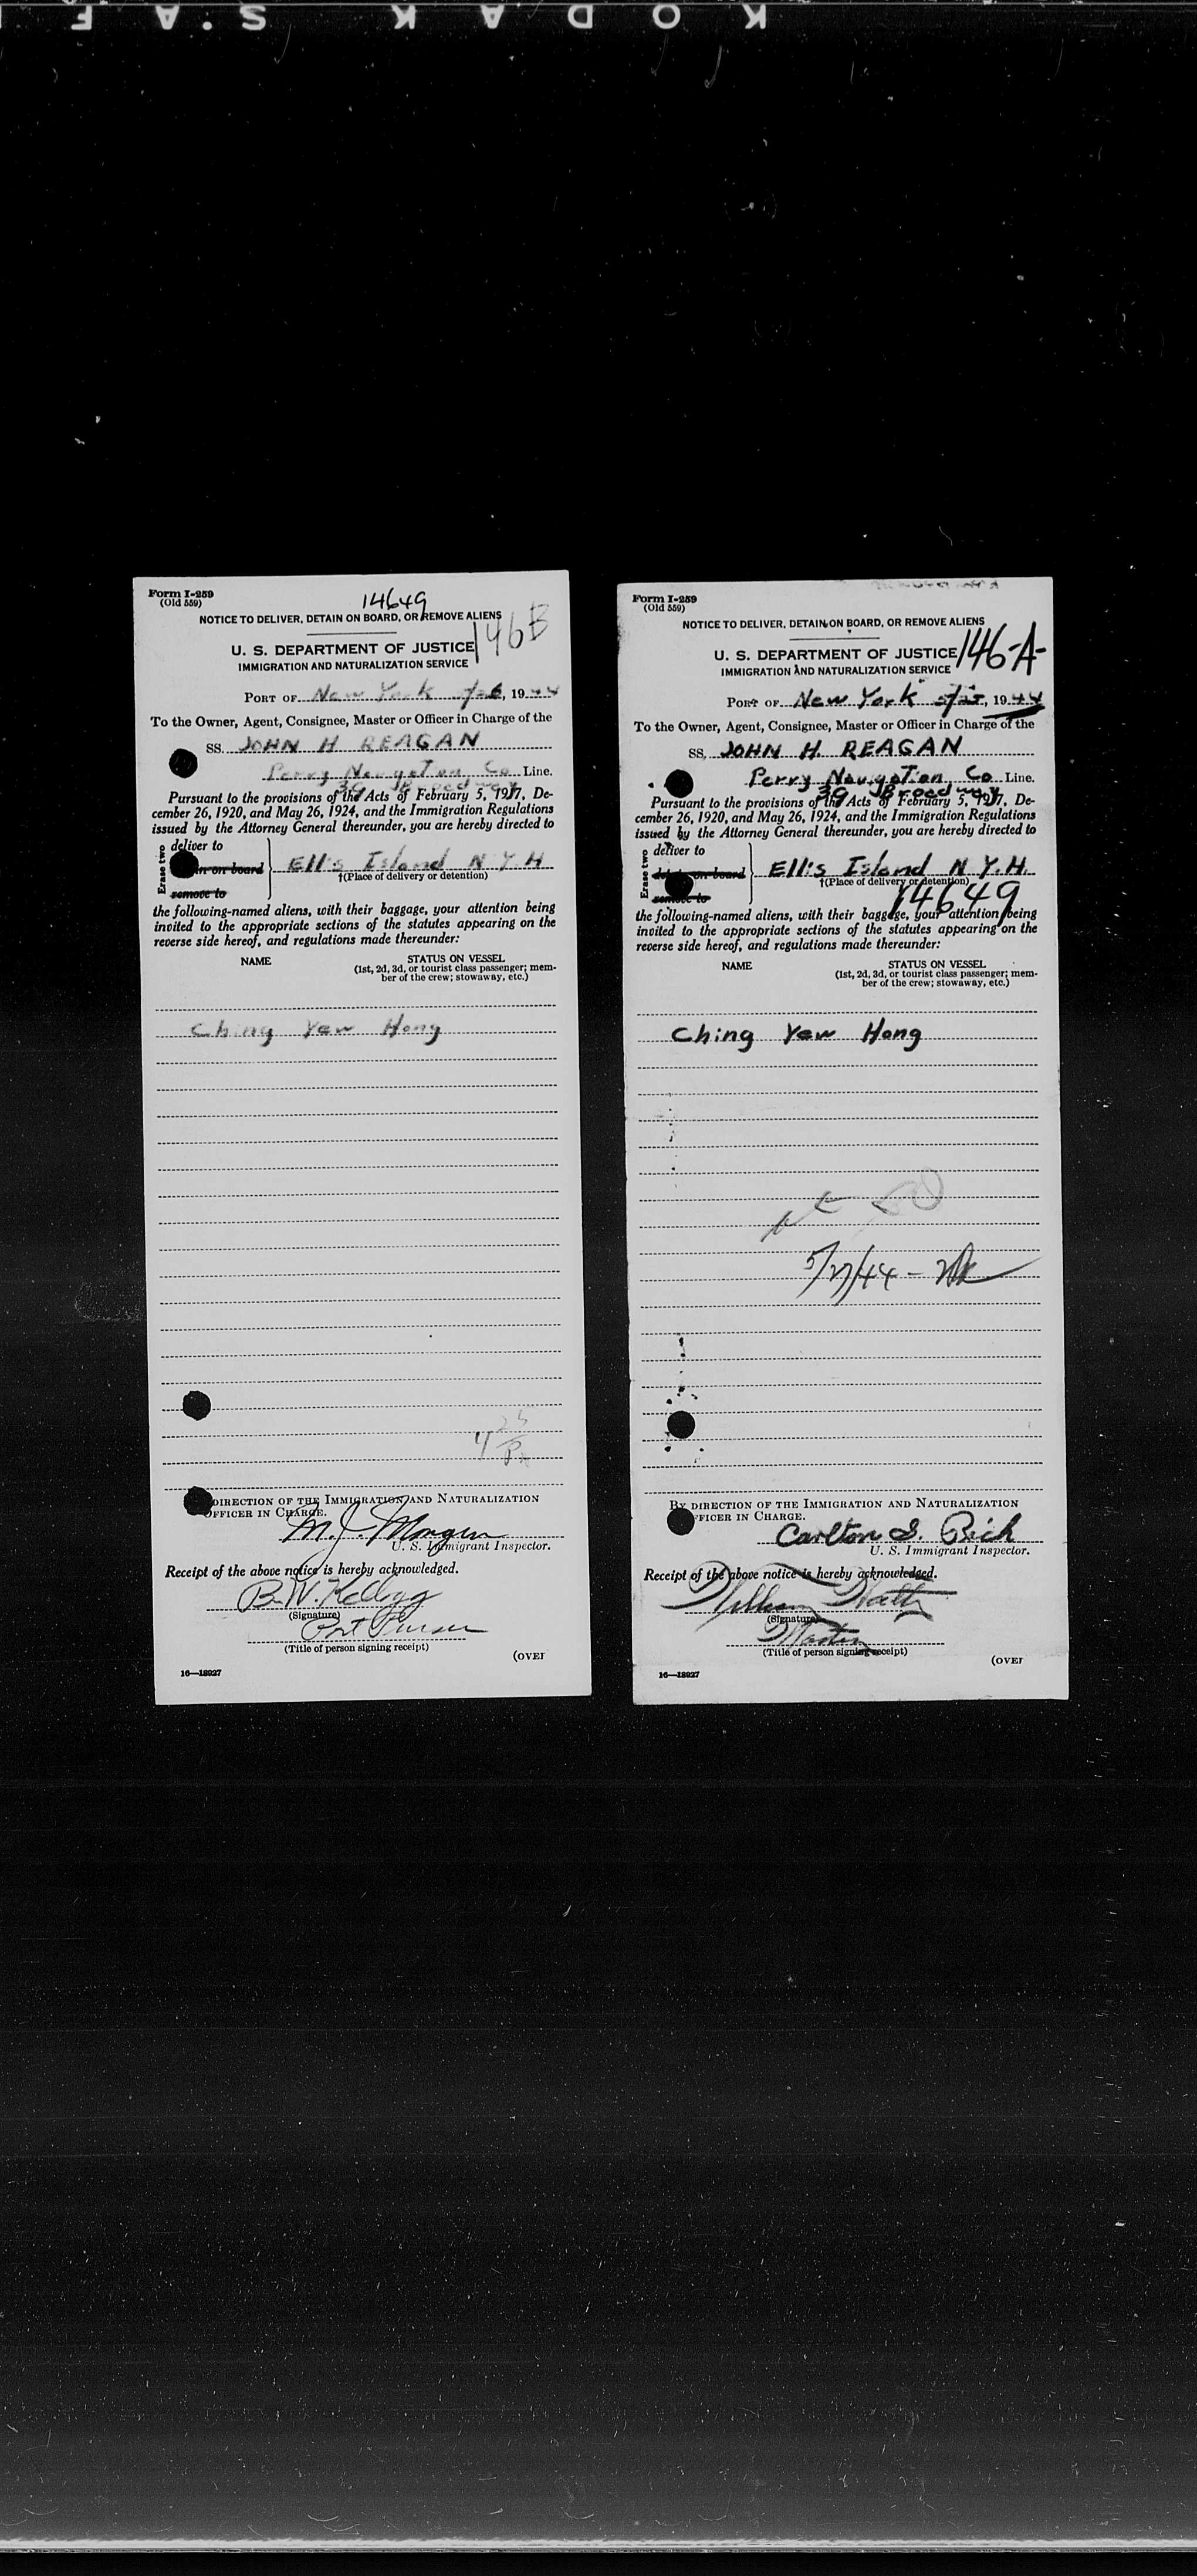 KODAK S.A.F
Form I-259
(Old 559)
14649
NOTICE TO DELIVER, DETAIN ON BOARD, OR REMOVE ALIENS
146B
U. S. DEPARTMENT OF JUSTICE
IMMIGRATION AND NATURALIZATION SERVICE
PORT OF New York 1944
To the Owner, Agent, Consignee, Master or Officer in Charge of the
SS. JOHN H REAGAN
Perry Navigation Co Line.
39 Broadway
Pursuant to the provisions of the Acts of February 5, 1917, De-
cember 26, 1920, and May 26, 1924, and the Immigration Regulations
issued by the Attorney General thereunder, you are hereby directed to
Erase two
deliver to
in on board
remove to
Ellis Island N Y H
†(Place of delivery or detention)
the following-named aliens, with their baggage, your attention being
invited to the appropriate sections of the statutes appearing on the
reverse side hereof, and regulations made thereunder:
NAME
STATUS ON VESSEL
(1st, 2d, 3d, or tourist class passenger; mem-
ber of the crew; stowaway, etc.)
Ching Yew Hong
DIRECTION OF THE IMMIGRATION AND NATURALIZATION
OFFICER IN CHARGE.
M. J. Morgan
U. S. Immigrant Inspector.
Receipt of the above notice is hereby acknowledged.
B. W. Kellogg
(Signature)
Port Purser
(Title of person signing receipt)
(OVER
16—18927
Form I-259
(Old 559)
NOTICE TO DELIVER, DETAIN ON BOARD, OR REMOVE ALIENS
146-A-
U. S. DEPARTMENT OF JUSTICE
IMMIGRATION AND NATURALIZATION SERVICE
PORT OF New York 1944
To the Owner, Agent, Consignee, Master or Officer in Charge of the
SS. JOHN H. REAGAN
Perry Navigation Co Line.
39 Broadway
Pursuant to the provisions of the Acts of February 5, 1917, De-
cember 26, 1920, and May 26, 1924, and the Immigration Regulations
issued by the Attorney General thereunder, you are hereby directed to
Erase two
deliver to
on board
remove to
Ellis Island N.Y.H.
†(Place of delivery or detention)
14649
the following-named aliens, with their baggage, your attention being
invited to the appropriate sections of the statutes appearing on the
reverse side hereof, and regulations made thereunder:
NAME
STATUS ON VESSEL
(1st, 2d, 3d, or tourist class passenger; mem-
ber of the crew; stowaway, etc.)
Ching Yew Hong
5/27/44
BY DIRECTION OF THE IMMIGRATION AND NATURALIZATION
FFICER IN CHARGE.
Carlton S. Rich
U. S. Immigrant Inspector.
Receipt of the above notice is hereby acknowledged.
William
(Signature)
Master
(Title of person signing receipt)
(OVER
16—18927